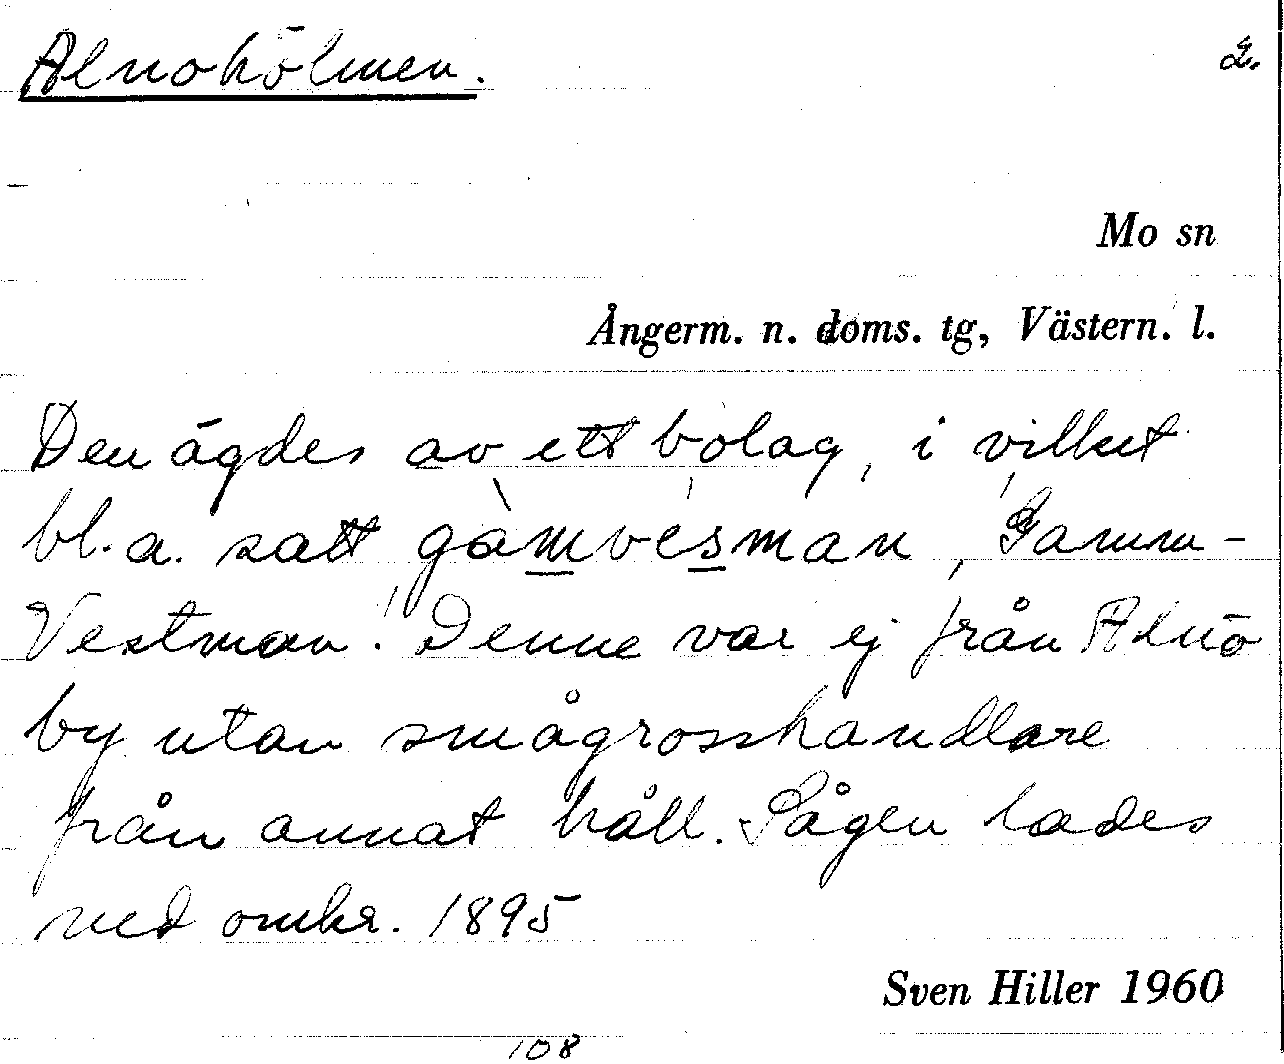 Alnöhölmen.
2.
Mo sn
Ångerm. n. doms. tg, Västern. l.
Den ägdes av ett bolag, i vilket
bl.a. satt gàmvésman, 'Gamm-
Vestman'. Denne var ej från Alnö
by utan smågrosshandlare
från annat håll. Sågen lades
ned omkr. 1895
Sven Hiller 1960
108